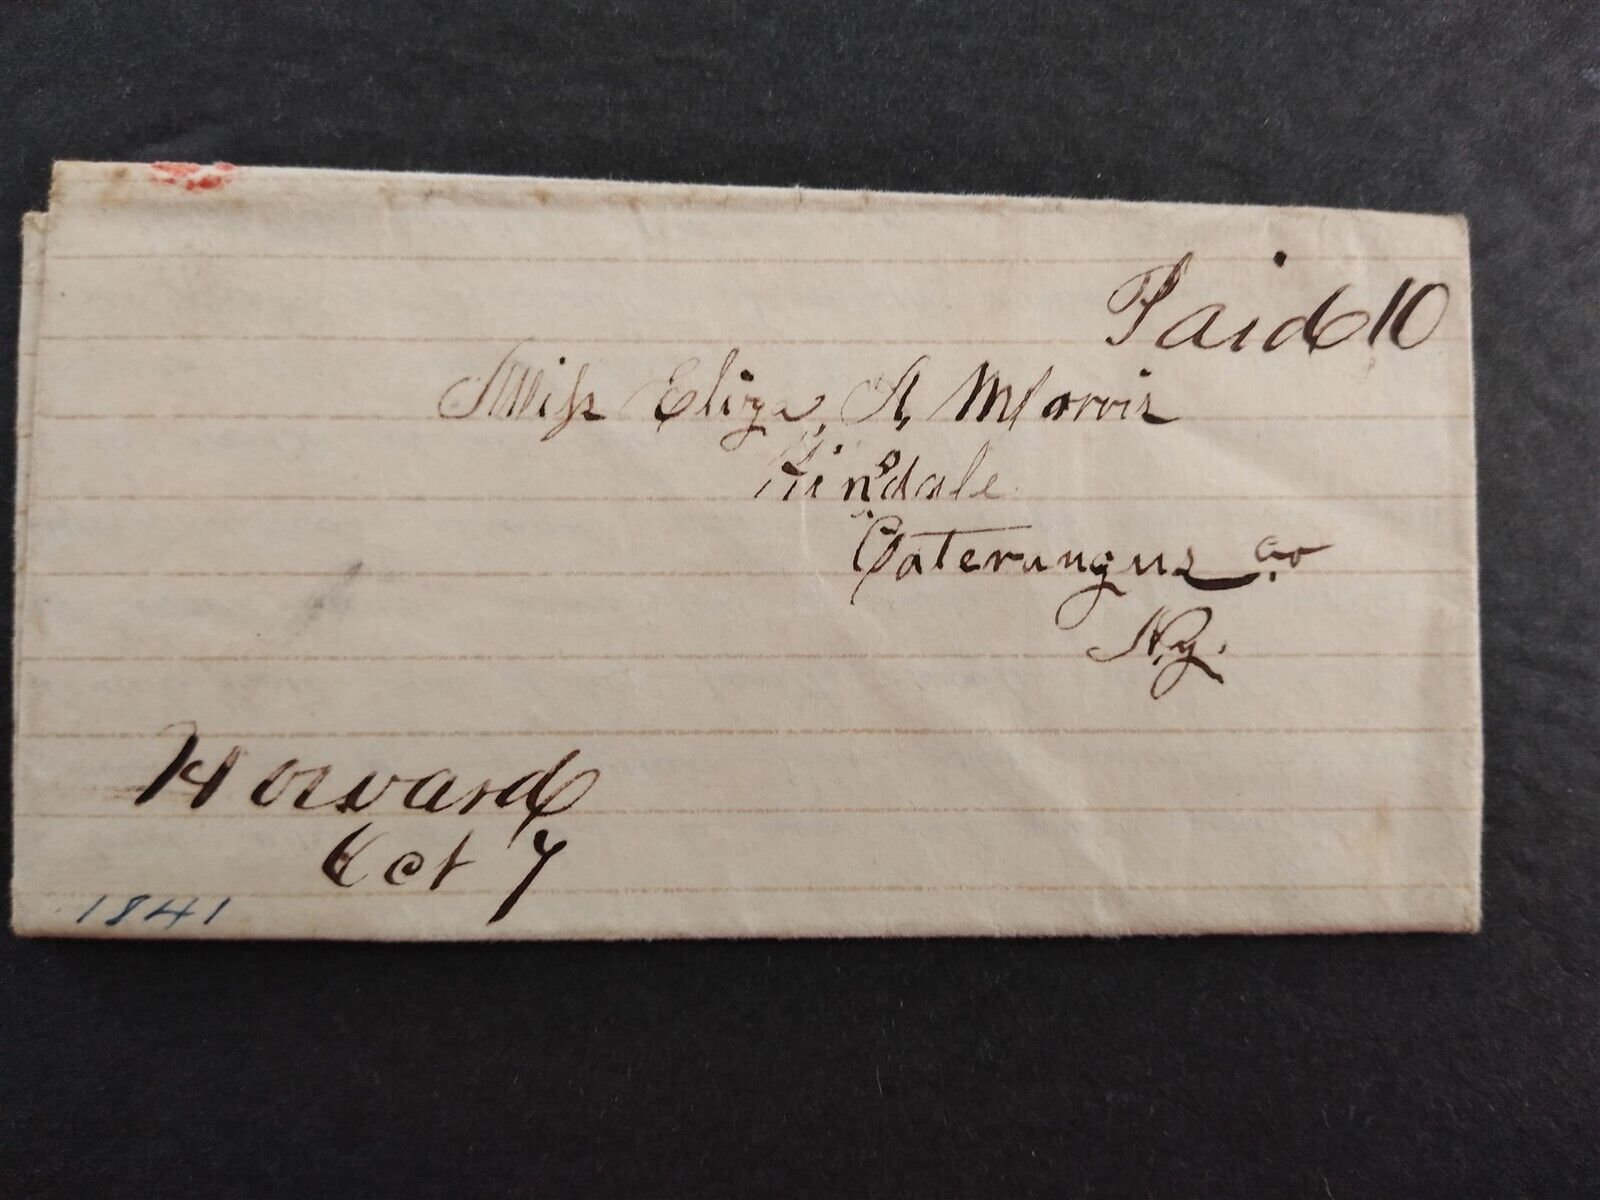 Paid 10
Miss Eliza, A, Morris
Hinsdale
Caterungus Co
N.y.
Howard
Oct 7
1841